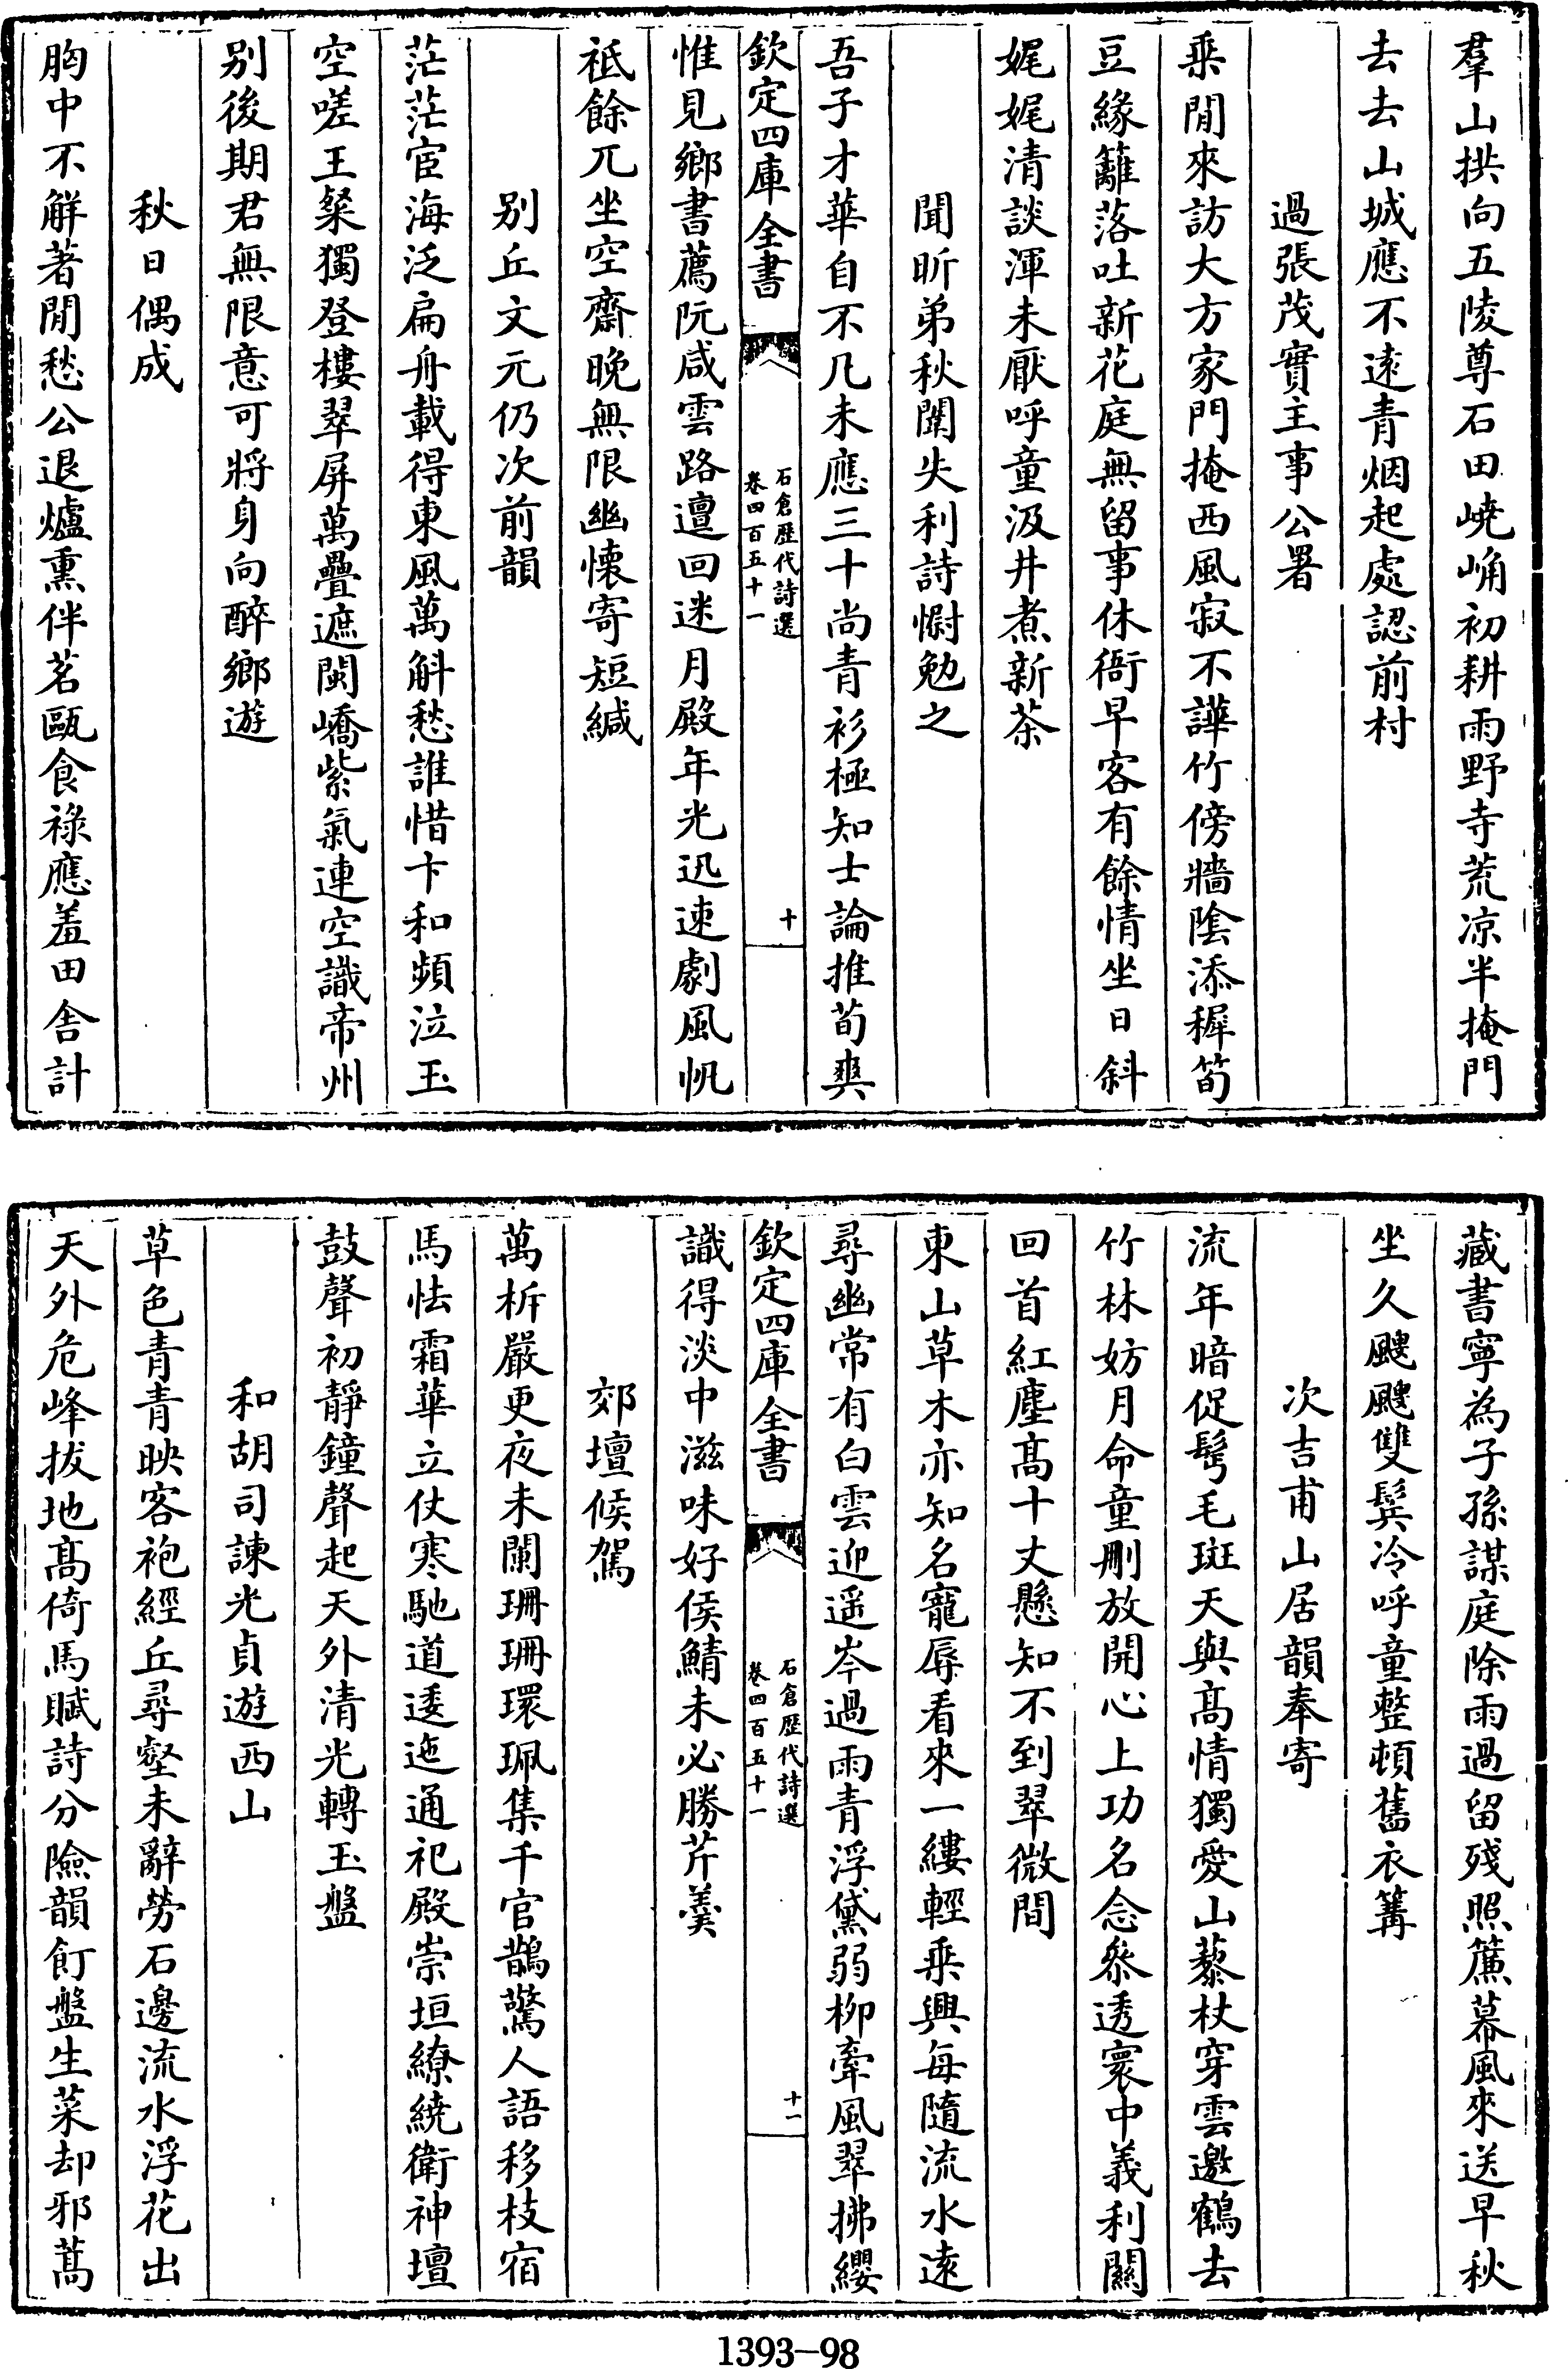 羣山拱向五陵尊石田嶢崅初耕雨野寺荒凉半掩門
去去山城應不遠青烟起處認前村
過張茂實主事公署
乗閒來訪大方家門掩西風寂不譁竹傍牆陰添穉筍
豆緣籬落吐新花庭無留事休衙早客有餘情坐日斜
娓娓清談渾未厭呼童汲井煮新茶
聞昕弟秋闈失利詩慰勉之
吾子才華自不凡未應三十尚青衫極知士論推荀爽
欽定四庫全書
石倉歷代詩選
卷四百五十一
十
惟見鄉書薦阮咸雲路邅回迷月殿年光迅速劇風帆
祗餘兀坐空齋晚無限幽懷寄短緘
别丘文元仍次前韻
茫茫宦海泛扁舟載得東風萬斛愁誰惜卞和頻泣玉
空嗟王粲獨登樓翠屏萬疊遮閩嶠紫氣連空識帝州
别後期君無限意可將身向醉鄉遊
秋日偶成
胸中不觧著閒愁公退爐熏伴茗甌食祿應羞田舍計
藏書寧為子孫謀庭除雨過留殘照簾幕風來送早秋
坐久颼颼雙鬂冷呼童整頓舊衣篝
次吉甫山居韻奉寄
流年暗促髩毛斑天與髙情獨愛山藜杖穿雲邀鶴去
竹林妨月命童刪放開心上功名念叅透寰中義利關
回首紅塵髙十丈懸知不到翠微間
東山草木亦知名寵辱看來一縷輕乗興每隨流水遠
尋幽常有白雲迎遥岑過雨青浮黛弱栁牽風翠拂纓
欽定四庫全書
石倉歷代詩選
卷四百五十一
十一
識得淡中滋味好侯鯖未必勝芹羮
郊壇候駕
萬柝嚴更夜未闌珊珊環珮集千官鵲驚人語移枝宿
馬怯霜華立仗寒馳道逶迤通祀殿崇垣繚繞衛神壇
鼓聲初靜鐘聲起天外清光轉玉盤
和胡司諫光貞遊西山
草色青青映客袍經丘尋壑未辭勞石邊流水浮花出
天外危峰拔地髙倚馬賦詩分險韻飣盤生菜却邪蒿
1393-98